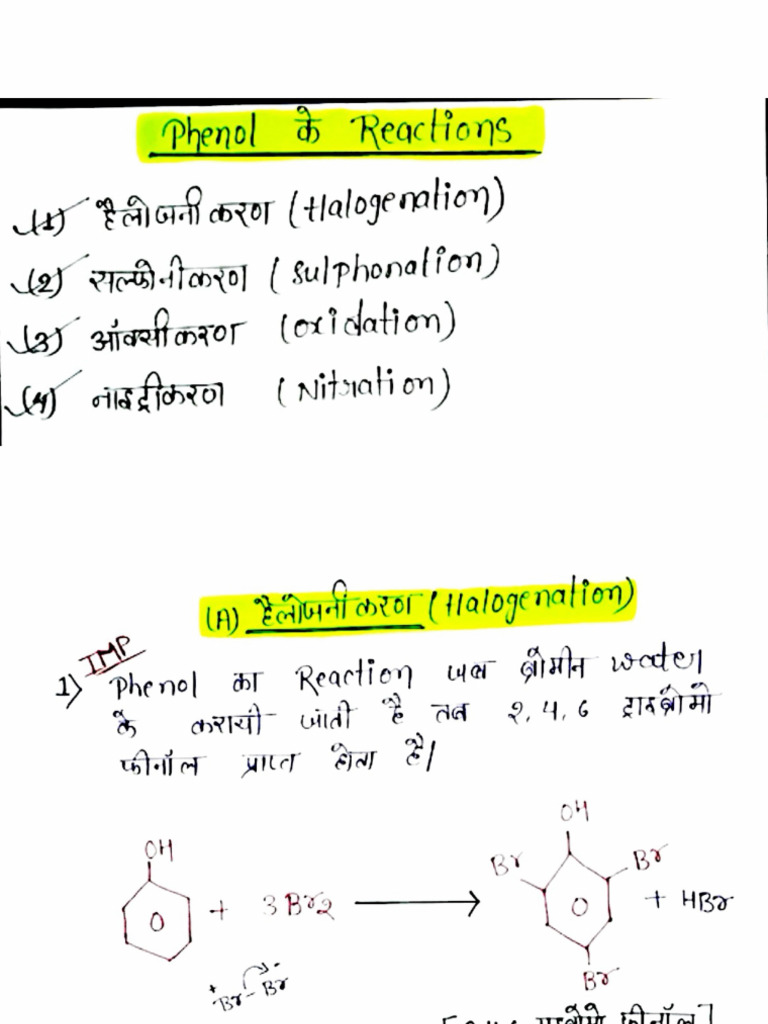 Phenol के Reactions
(1) हैलोजनीकरण (Halogenation)
(2) सल्फोनीकरण (Sulphonation)
(3) ऑक्सीकरण (Oxidation)
(4) नाइट्रीकरण (Nitration)
(A) हैलोजनीकरण (Halogenation)
IMP
1) Phenol का Reaction जब ब्रोमीन water
के करायी जाती है तब 2, 4, 6 ट्राइब्रोमो
फीनॉल प्राप्त होता है।
OH
OH
Br
Br
+ 3Br2
+ HBr
Br
+Br-Br-